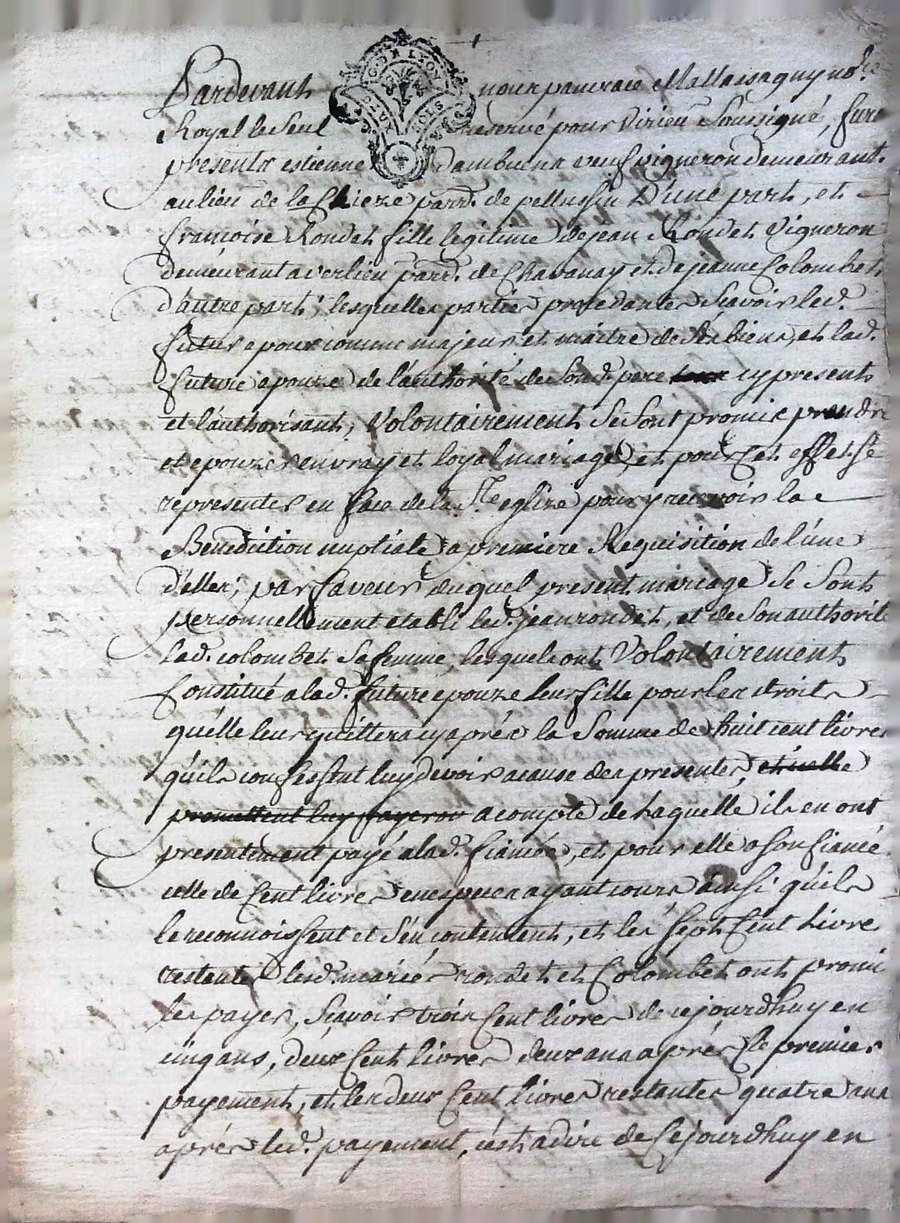 Pardevant nous pancrace Mallassagny no.re
Royal le Seul reservé pour Virieu Soussigné, fure
presents estienne dambuena veuf vigneron demeurant
au lieu de la Chieze par.sse de pellussin D'une part, et
francoise Rondet fille legitime de jean Rondet Vigneron
demeurant a verlieu par.sse de Chavanay et de jeanne Colombet
d'autre part; lesquelles parties procedantes Scavoir led.
futur epoux comme majeur et maitre de Ses biens, et lad.
future epouze de l'authorité de Son d. pere cy present
et l'authorisant, Volontairement Se Sont promis prendre
et epouzer en vray et loyal mariage, et pour Cet effet Se
representer en face de la S.te eglise pour y recevoir la
Benediction nuptiale a premiere Requisition de l'une
d'elles; par faveur duquel present mariage Se Sont
personnellement etabli led. jean rondet, et de Son authorité
lad. colombet Sa femme, lesquels ont Volontairement
Constitué a lad. future epouze leur fille pour les droits
qu'elle leur quittera cy après la Somme de huit cent livres
qu'ils confessent luy devoir a cause des presentes, et icelle
promettent luy payer ou a compte de Laquelle ils en ont
presentement payé a lad. fiancée, et pour elle a Son fiancé
celle de Cent livres en especes ayant cours ainsi qu'ils
le reconnoissent et S'en contentent, et les Sept Cent livres
restantes lesd. mariés rondet et Colombet ont promi
les payer, Scavoir trois Cent livres de ce jourdhuy en
cinq ans, deux Cent livres deux ans après le premier
payement, et les deux Cent livres restantes quatre ans
après led. payement, c'est a dire de Ce jourdhuy en
G. DE LYON